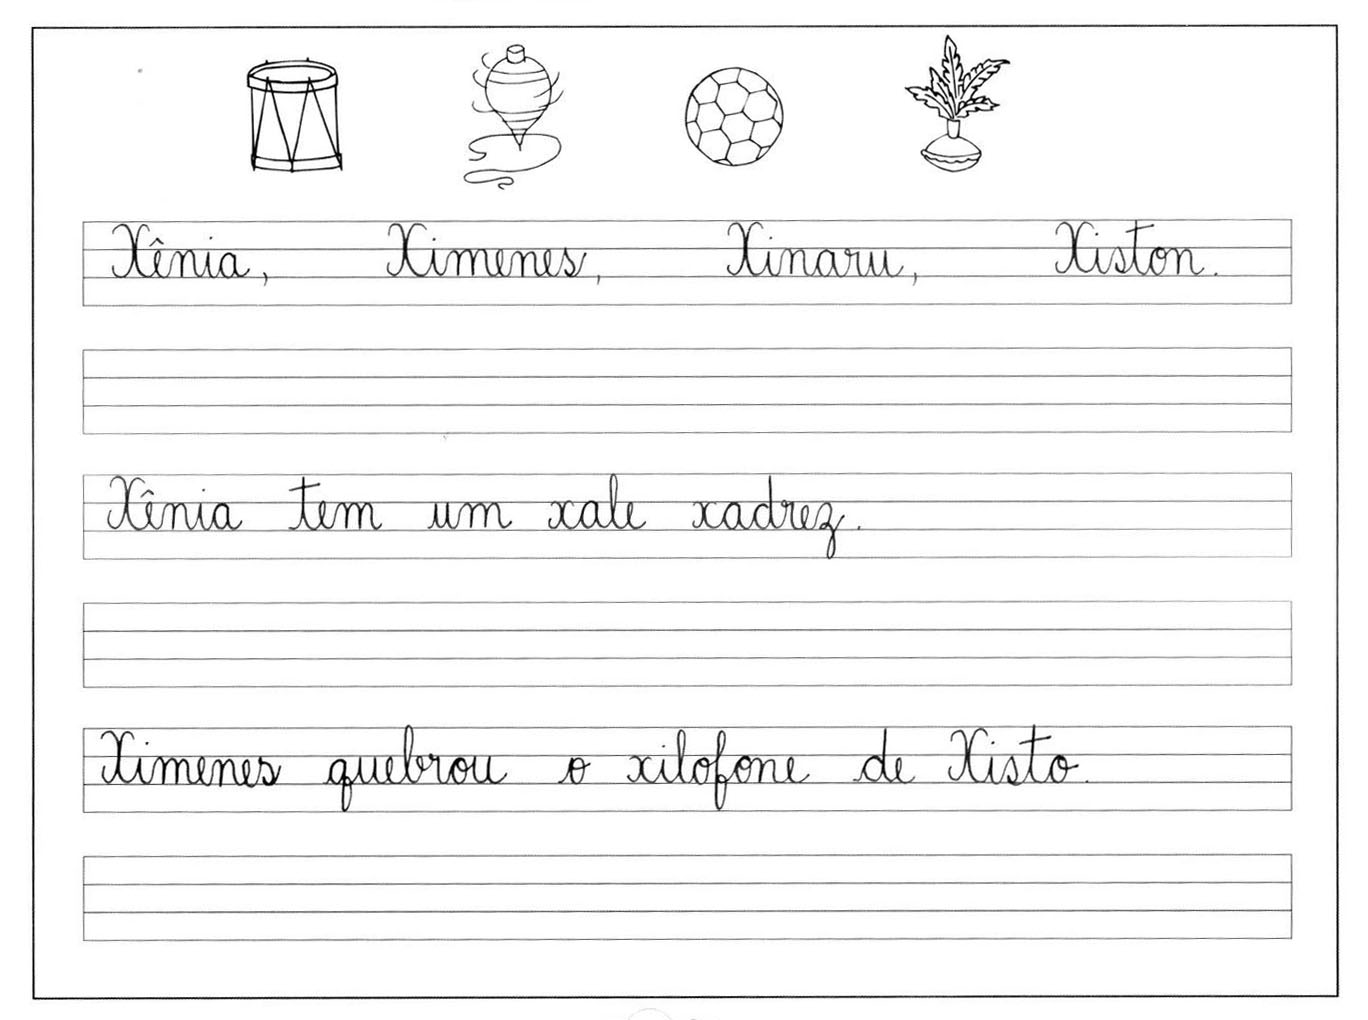 Xênia, Ximenes, Xinaru, Xiston.
Xênia tem um xale xadrez.
Ximenes quebrou o xilofone de Xisto.